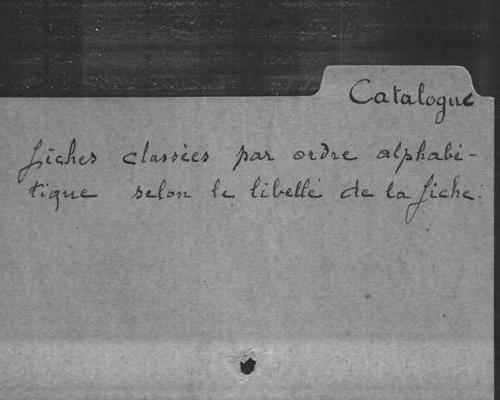 Catalogue
fiches classées par ordre alphabé-
tique selon le libellé de la fiche.